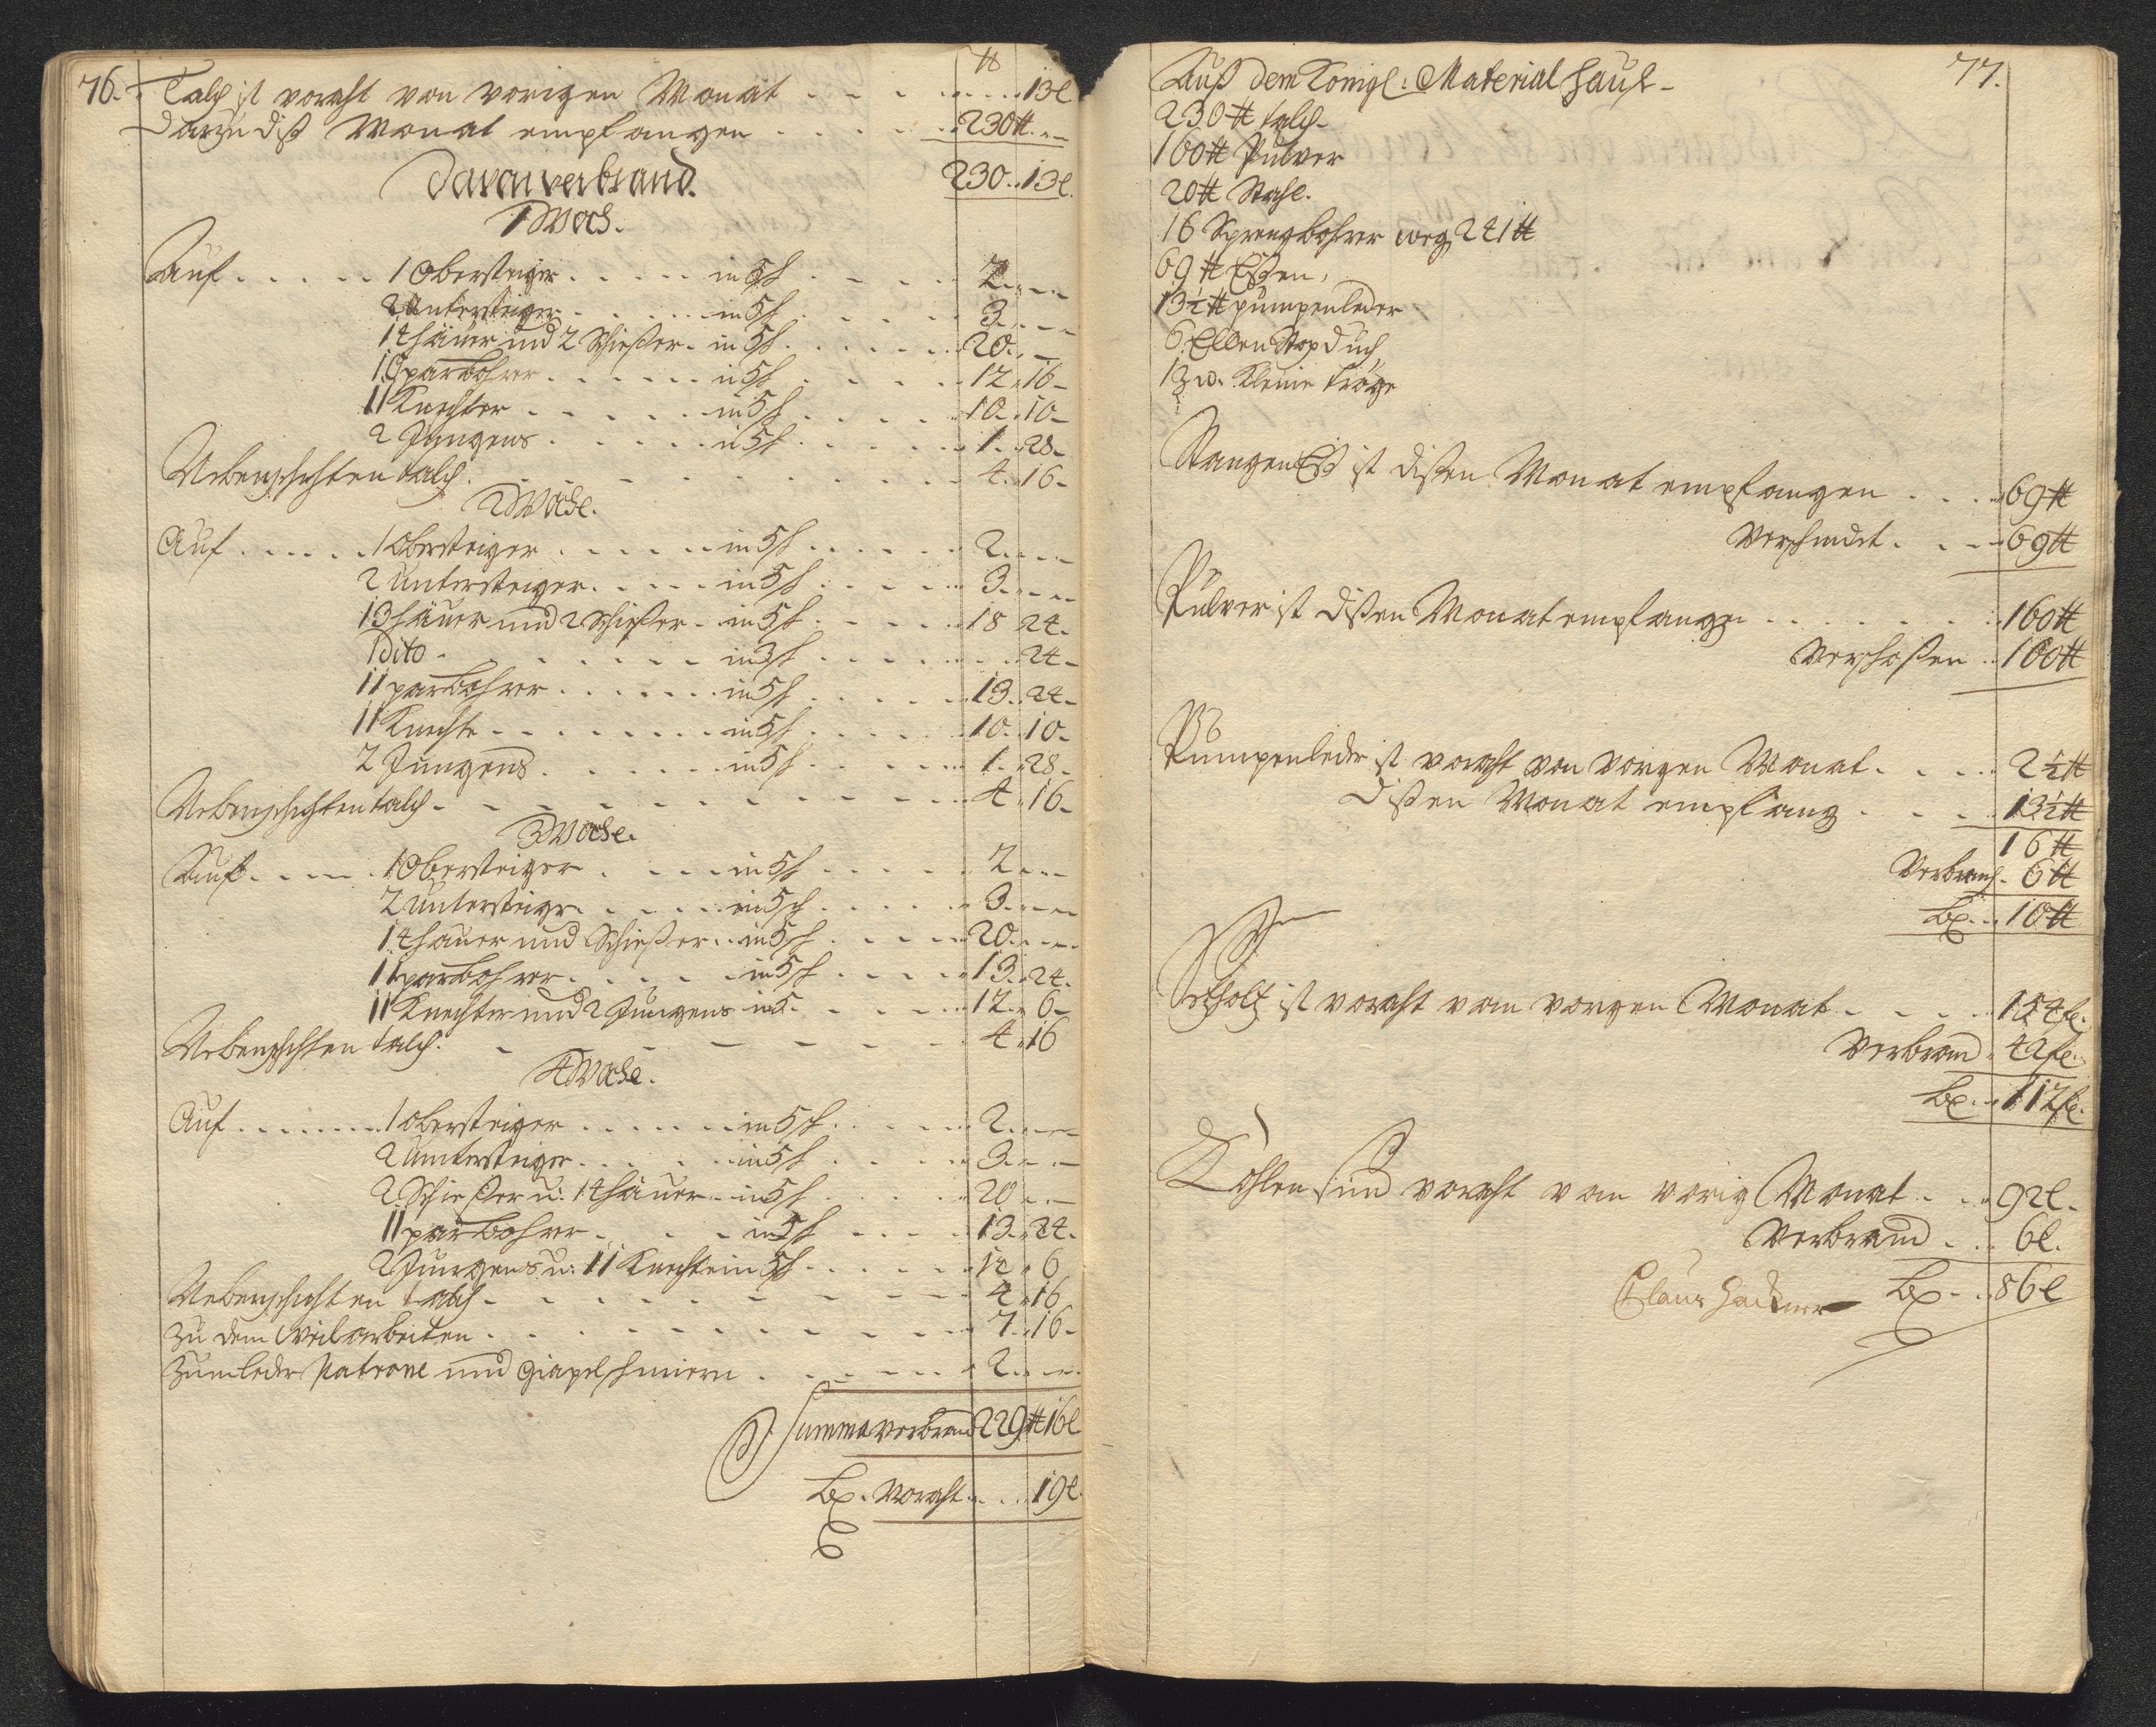 76.
℔
Talch ist voraht von vorigen Monat . . . . . . 13 l
Darzu diß Monat empfangen . . . . . 230 ℔ . . .
Davon verbrand. 230 . 13 l.
1 Woch.
Auf . . . . . 1 Obersteiger . . . . . in 5 sh . . . . . 2 . . . .
2 Untersteiger . . . . . in 5 sh . . . . . 3 . . . .
14 häuer und 2 Schießer . in 5 sh . . . . . 20 . . .
10 parbohrer . . . . . in 5 sh . . . . . 12 . 16 .
11 Knechter . . . . . in 5 sh . . . . . 10 . 10 .
2 Jungens . . . . . in 5 sh . . . . . 1 . 28 .
Uebenschichten talch . . . . . 4 . 16 .
2 Woche.
Auf . . . . . 1 Obersteiger . . . . . in 5 sh . . . . . 2 . . . .
2 Untersteiger . . . . . in 5 sh . . . . . 3 . . . .
13 häuer und 2 Schießer . in 5 sh . . . . . 18 . 24 .
1 dito . . . . . in 3 sh . . . . . 24 .
11 parbohrer . . . . . in 5 sh . . . . . 13 . 24 .
11 Knechte . . . . . in 5 sh . . . . . 10 . 10 .
2 Jungens . . . . . in 5 sh . . . . . 1 . 28 .
Uebenschichten talch . . . . . 4 . 16 .
3 Woche.
Auf . . . . . 1 Obersteiger . . . . . in 5 sh . . . . . 2 . . . .
2 Untersteiger . . . . . in 5 sch . . . . . 3 . . . .
14 hauer und Schießer . . in 5 sh . . . . . 20 . . . .
11 parbohrer . . . . . in 5 sh . . . . . 13 . 24 .
11 Knechter und 2 Jungens in 5 . . . . . 12 . 6 .
Uebenschichten talch . . . . . 4 . 16
4 Woche.
Auf . . . . . 1 Obersteiger . . . . . in 5 sh . . . . . 2 . . . .
2 Untersteiger . . . . . in 5 sh . . . . . 3 . . . .
2 Schießer u: 14 häuer . in 5 sh . . . . . 20 . . .
11 parbohrer . . . . . in 5 sh . . . . . 13 . 24 .
2 Jungens u: 11 Knechte in 5 sh . . . . . 12 . 6
Uebenschichten talch . . . . . 4 . 16
Zu dem arbeiten . . . . . 7 . 16 .
Zum leder Patrone und Giapel schmiern . . . . . 2 . . . .
Summa verbrand 229 ℔ 16 l
bl. voraht . . . . 19 l.
77.
Auß dem Königl: Material hauß -
230 ℔ talch -
160 ℔ Pulver
20 ℔ Stahl.
16 Sprengbohrer weg 241 ℔
69 ℔ Eßen,
13½ ℔ pumpenleder
6 Ellen Stopduch,
1 kleine tröge
Stangen Eiß ist dißen Monat empfangen . . . . 69 ℔
verschmidt . . . . 69 ℔
Pulver ist dißen Monat empfangen . . . . . 160 ℔
Verschoßen . . 160 ℔
Pumpenleder ist voraht von vorgen Monat . . . . 2½ ℔
dißen Monat empfang . . . . 13½ ℔
16 ℔
Verbrauch . 6 ℔
bl. . . 10 ℔
Setzholtz ist voraht vom vorgen Monat . . . . 154 fl.
Verbrand . 42 fl.
bl. . . 112 fl.
Kohlen sind voraht vom vorig Monat . . . 92 l.
Verbrand . . . 6 l.
bl. . . 86 l
Claus